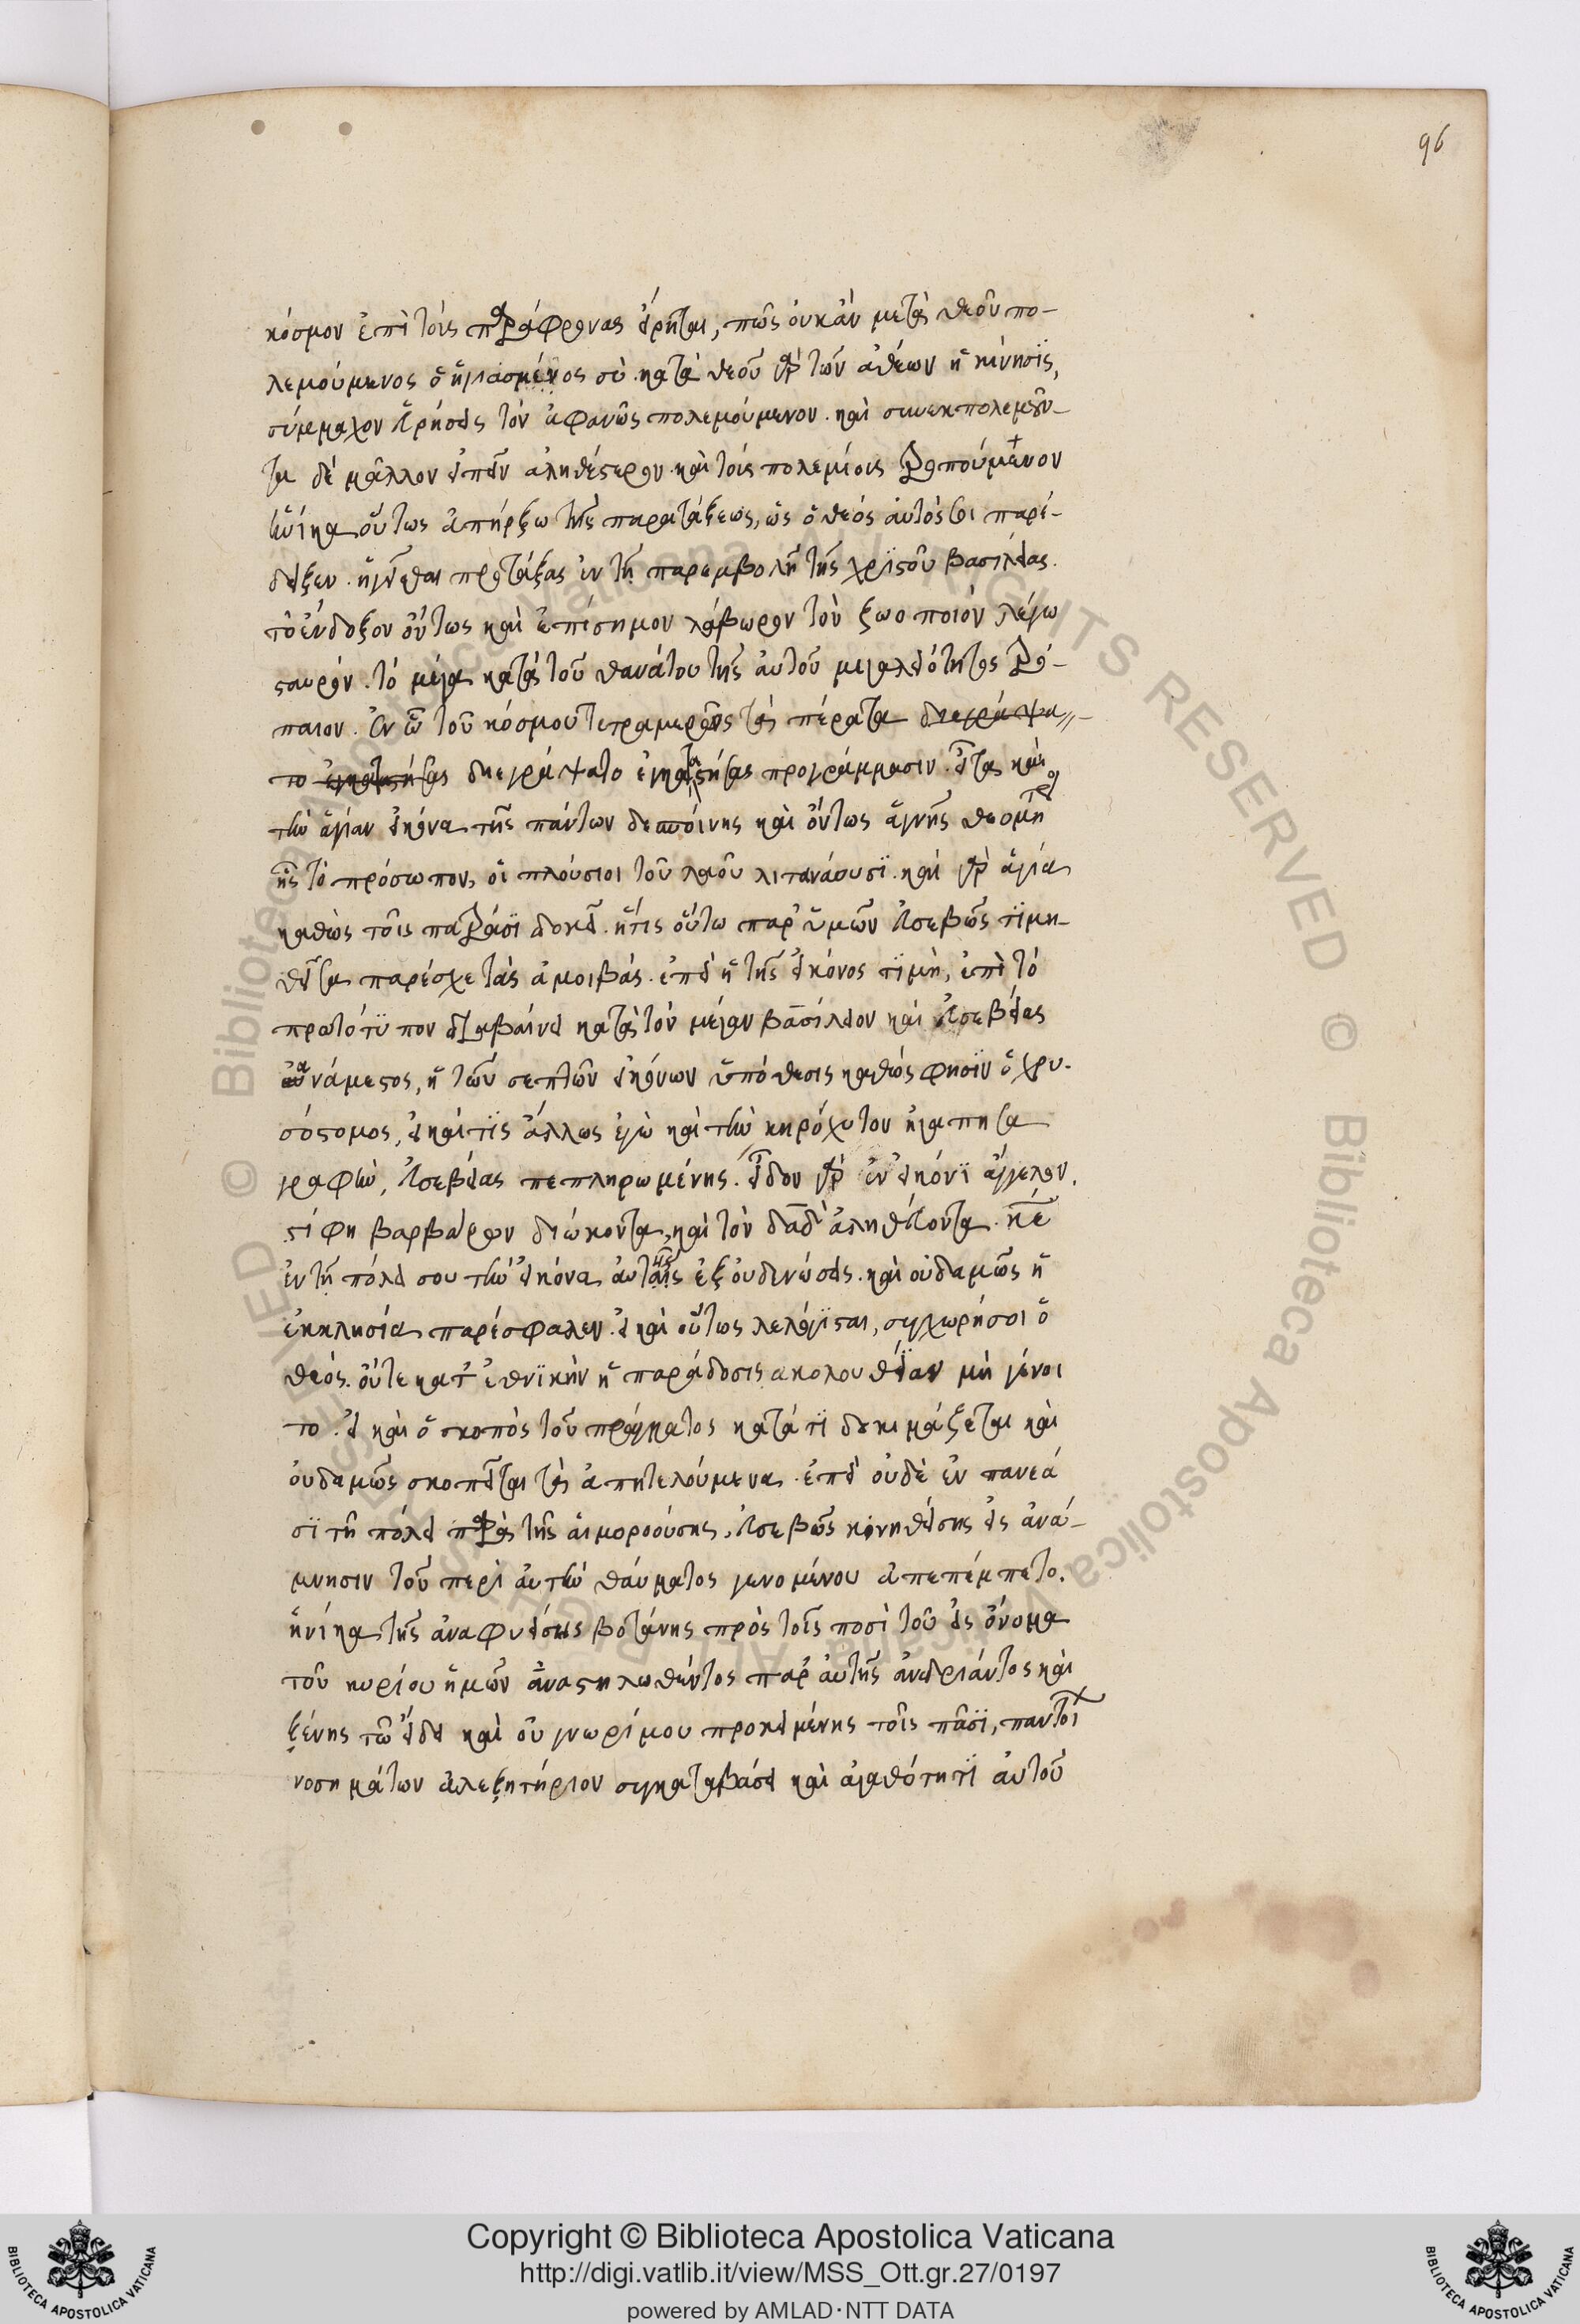 96
κόσμον ἐπὶ τοὺς παράφρονας εἴρηται, πῶς οὐκ ἂν μετὰ θεοῦ πο-
λεμούμενος ὁ ἡγιασμένος σὺ. κατὰ θεοῦ γὰρ τῶν ἀθέων ἡ κίνησϊς,
σύμμαχον εὑρήσεις τὸν ἀφανῶς πολεμούμενον. καὶ συνεκπολεμοῦν-
τα δὲ μᾶλλον εἰπεῖν ἀληθέστερον. καὶ τοὺς πολεμίους τροπούμενον
ἡνίκα οὕτως ἀπήρξω τῆς παρατάξεως, ὡς ὁ θεός αὐτός σοι παρέ-
δειξεν. ἡγεῖσθαι προτάξας ἐν τῇ παρεμβολῇ τῆς χριστοῦ βασιλείας.
τὸ ἔνδοξον ὄντως καὶ ἐπίσημον λάβωρον τὸν ζωοποιὸν λέγω
σταυρόν. τὸ μέγα κατὰ τοῦ θανάτου τῆς αὐτοῦ μεγαλειότητος τρό-
παιον. ἐν ᾧ τοῦ κόσμου τετραμερῶς τὰ πέρατα διεγράψα-
το διεγράψατο προγράμμασιν. εἶτα καὶ
τὴν ἁγίαν εἰκόνα τῆς πάντων δεσποίνης καὶ ὄντως ἁγνῆς θεομήτρος
ἧς τὸ πρόσωπον, οἱ πλούσιοι τοῦ λαοῦ λιτανεύουσϊ. καὶ γὰρ ἁγία
καθὼς τοῖς πατράσϊ δοκεῖ. ἥτις οὕτω παρ' ὑμῶν εὐσεβῶς τϊμη-
θεῖσα παρέσχε τὰς ἀμοιβάς. ἐπεὶ ἡ τῆς εἰκόνος τϊμὴ, ἐπὶ τὸ
πρωτότϋπον διαβαίνει κατὰ τὸν μέγαν βασίλειον καὶ εὐσεβείας
ἀνάμεστος, ἡ τῶν σεπτῶν εἰκόνων ὑπόθεσις καθώς φησϊν ὁ χρυ-
σόστομος, εἰ καί τϊς ἄλλως ἐγὼ καὶ τὴν κηρόχυτον ἠγάπησα
γραφὴν, εὐσεβείας πεπληρωμένης. εἶδον γὰρ ἐν εἰκόνϊ ἄγγελον.
στίφη βαρβάρων διώκοντα, καὶ τὸν δαδ ἀληθεύοντα. κε
ἐν τῇ πόλει σου τὴν εἰκόνα αὐτῶν ἐξουδενώσεις. καὶ οὐδαμῶς ἡ
ἐκκλησία παρέσφαλεν. εἰ καὶ οὕτως λελόγϊσται, συγχωρήσοι ὁ
θεός. οὔτε κατ' ἐθνϊκὴν ἡ παράδοσις ἀκολουθείαν μὴ γένοι
το. εἰ καὶ ὁ σκοπὸς τοῦ πράγματος κατά τϊ δοκιμάζεται καὶ
οὐδαμῶς σκοπεῖται τὰ ἀπητελούμενα. ἐπεὶ οὐδὲ ἐν πανεά
σϊ τῇ πόλει παρὰ τῆς αἱμοροούσης, εὐσεβῶς κινηθείσης εἰς ἀνά-
μνησιν τοῦ περὶ αὐτὴν θαύματος γενομένου ἀπεπέμπετο.
ἡνίκα τῆς ἀναφυείσης βοτάνης πρὸς τοῖς ποσὶ τοῦ εἰς ὄνομα
τοῦ κυρίου ἡμῶν ἀναστηλωθέντος παρ' αὐτῆς ἀνδριάντος καὶ
ξένης τῷ εἴδει καὶ οὐ γνωρίμου προκειμένης τοῖς πᾶσϊ, παντοί
νοσημάτων ἀλεξητήριον συγκαταβάσει καὶ ἀγαθότητϊ αὐτοῦ
© Biblioteca Apostolica Vaticana ALL RIGHTS RESERVED
Copyright © Biblioteca Apostolica Vaticana
http://digi.vatlib.it/view/MSS_Ott.gr.27/0197
powered by AMLAD·NTT DATA
BIBLIOTECA APOSTOLICA VATICANA
BIBLIOTECA APOSTOLICA VATICANA